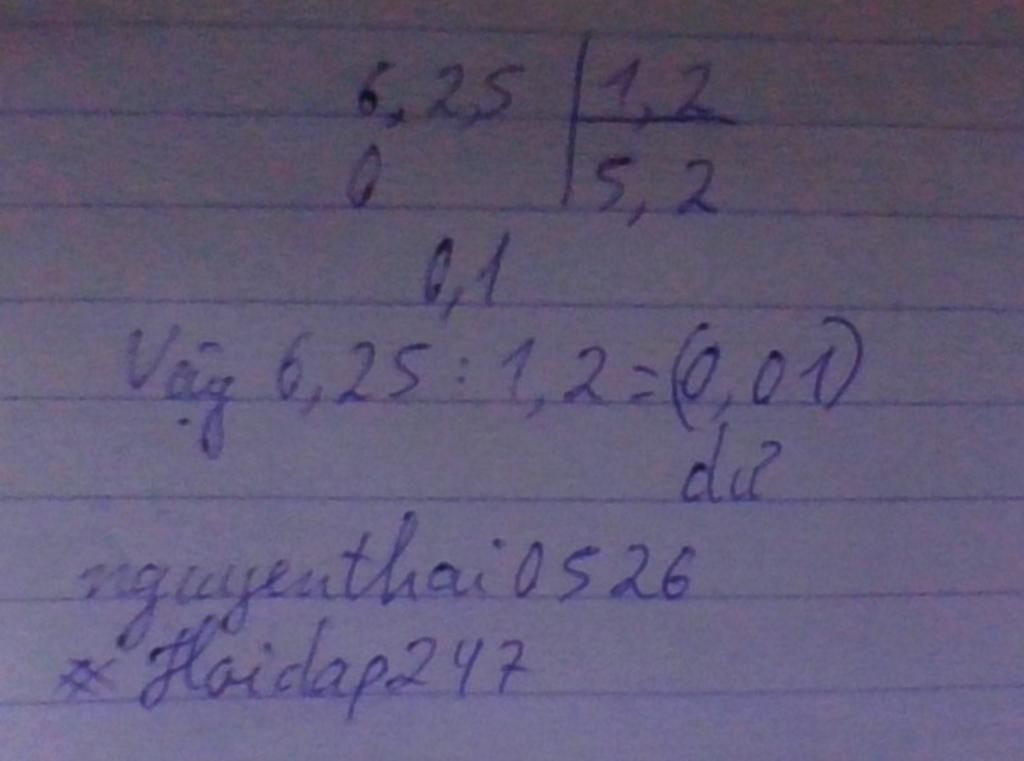 6,2,5 | 1,2
0 | 5,2
0,1
Vậy 6,25 : 1,2 = (0,01)
dư
nguyenthai0526
* Hoidap247